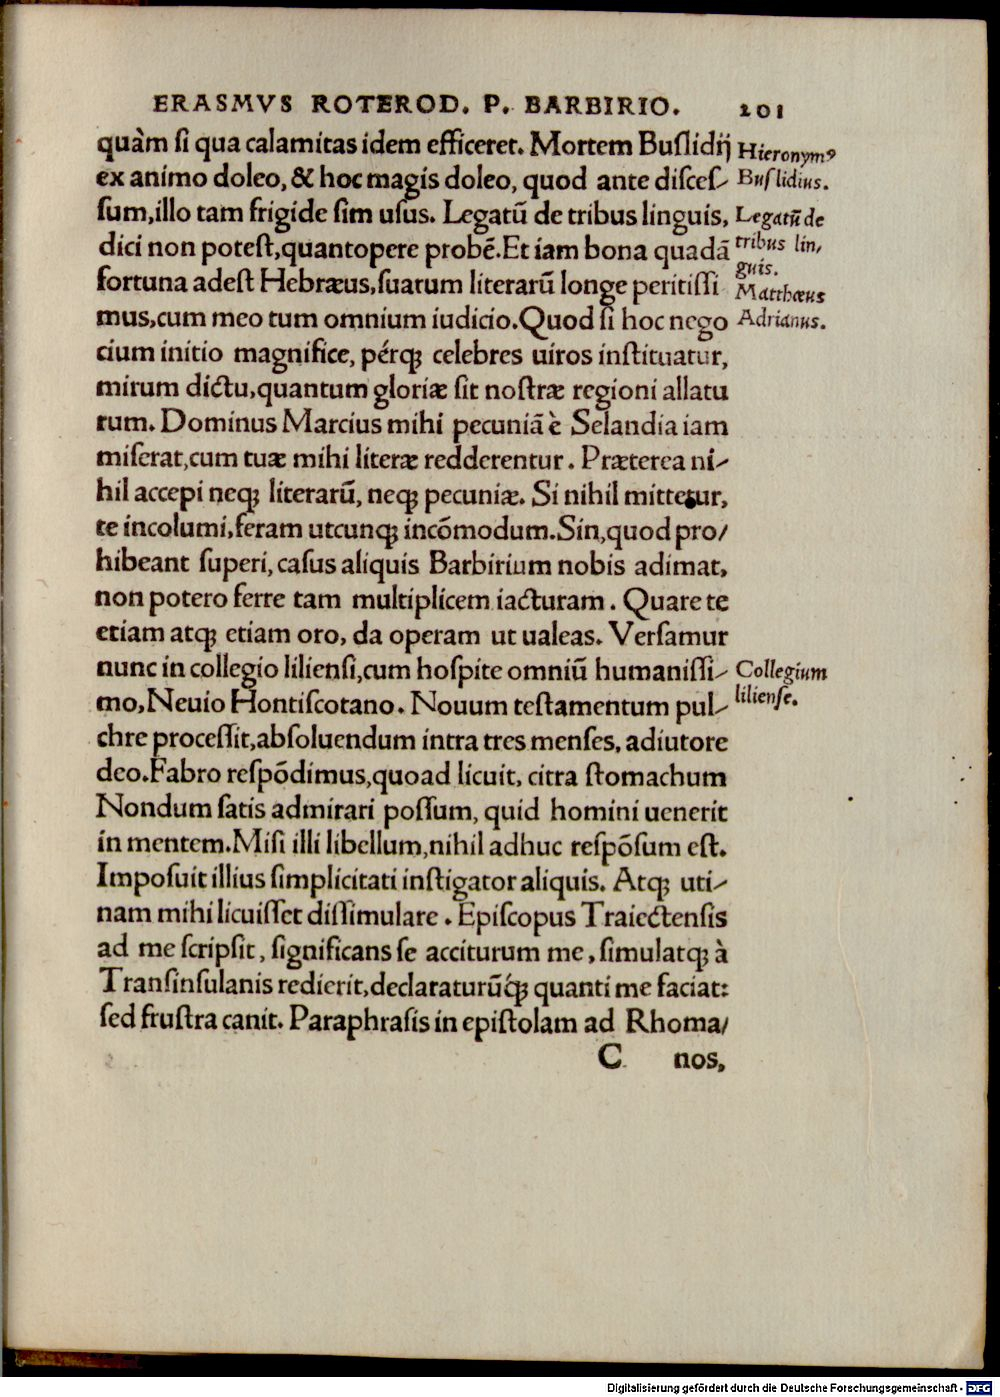 ERASMVS ROTEROD. P. BARBIRIO. 201
quàm ſi qua calamitas idem efficeret. Mortem Buſlidij
ex animo doleo, & hoc magis doleo, quod ante diſceſ-
ſum, illo tam frigide ſim uſus. Legatũ de tribus linguis,
dici non poteſt, quantopere probẽ. Et iam bona quadã
fortuna adeſt Hebræus, ſuarum literarũ longe peritiſſi
mus, cum meo tum omnium iudicio. Quod ſi hoc nego
cium initio magnifice, pérq; celebres uiros inſtituatur,
mirum dictu, quantum gloriæ ſit noſtræ regioni allatu
rum. Dominus Marcius mihi pecuniã è Selandia iam
miſerat, cum tuæ mihi literæ redderentur. Præterea ni-
hil accepi neq; literarũ, neq; pecuniæ. Si nihil mittetur,
te incolumi, feram utcunq; incõmodum. Sin, quod pro/
hibeant ſuperi, caſus aliquis Barbirium nobis adimat,
non potero ferre tam multiplicem iacturam. Quare te
etiam atq; etiam oro, da operam ut ualeas. Verſamur
nunc in collegio lilienſi, cum hoſpite omniũ humaniſſi-
mo, Neuio Hontiſcotano. Nouum teſtamentum pul-
chre proceſſit, abſoluendum intra tres menſes, adiutore
deo. Fabro reſpõdimus, quoad licuit, citra ſtomachum
Nondum ſatis admirari poſſum, quid homini uenerit
in mentem. Miſi illi libellum, nihil adhuc reſpõſum eſt.
Impoſuit illius ſimplicitati inſtigator aliquis. Atq; uti-
nam mihi licuiſſet diſſimulare. Epiſcopus Traiectenſis
ad me ſcripſit, ſignificans ſe acciturum me, ſimulatq; à
Tranſinſulanis redierit, declaraturũq́; quanti me faciat:
ſed fruſtra canit. Paraphraſis in epiſtolam ad Rhoma/
C nos,
Hieronymꝰ
Buſlidius.
Legatũ de
tribus lin,
guis.
Matthæus
Adrianus.
Collegium
lilienſe.
Digitalisierung gefördert durch die Deutsche Forschungsgemeinschaft - DFG